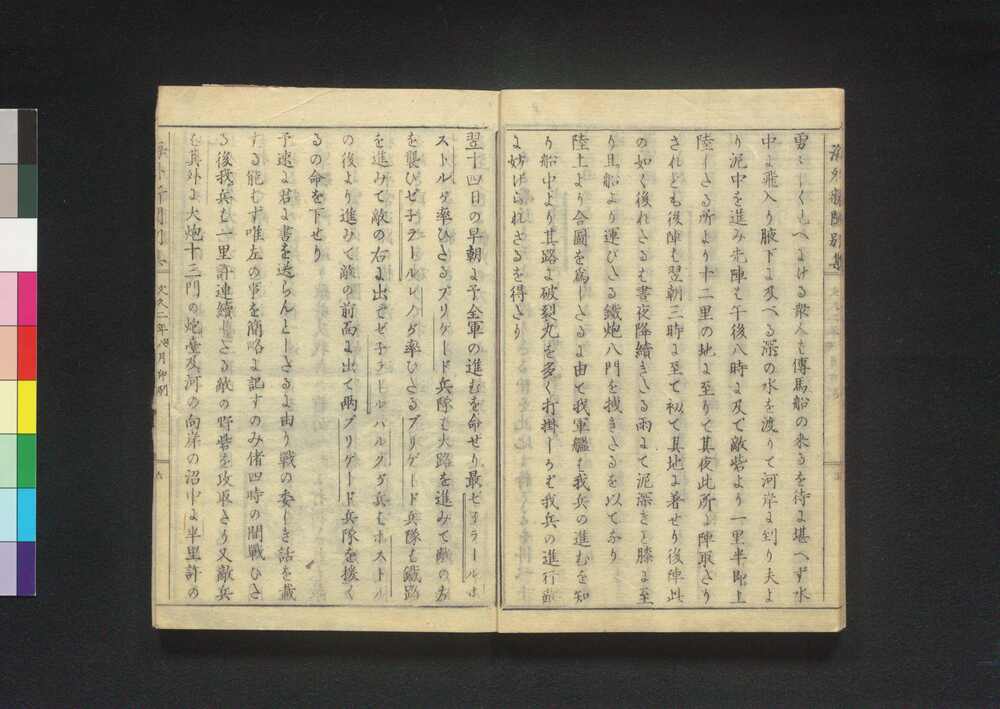 海外新聞別集
勇々しくもへよける散人も傳馬船の来るを待よ堪へず水
中よ飛入り腋下よ及べる深の水を渡りて河岸よ到り夫よ
り泥中を進み先陣も午後八時よ及で敵砦より一里半即上
陸しさる所より十二里の地よ至りて其夜此所よ陣取さり
されども後陣も翌朝三時よ至て初て其地よ着せり後陣此
の如く後れさるも昼夜降續きさる雨よて泥深きと膝よ至
り且船より運びさる鐵炮八門を拽きさるを以てかり
陸上より合圖を爲しさるよ由て我軍艦も我兵の進むを知
り船中より其路よ破裂丸を多く打掛しかむ我兵の進行敵
よ妨げられさるを得さり
翌十四日の早朝よ予全軍の進むを命せり最ゼ子ラールホ
ストルダ率ひさるブリゲード兵隊も大路を進みて敵の左
を襲ひゼ子ラールレノダ率ひさるブリゲード兵隊も鐵路
を進みて敵の右よ出でゼ子ラールパルクダ兵もホストル
の後より進みて敵の前面よ出て兩ブリゲード兵隊を援く
るの命を下せり
予速よ君よ書を送らんとしさるよ由り戰の委しき話を載
する能むず唯左の事を簡略よ記すのみ偖四時の間戰ひさ
る後我兵も一里許連續しさる敵の野砦を攻取さり又敵兵
も其外よ大炮十三門の炮臺及河の向岸の沼中よ半里許の
海外新聞別集 文久二年八月印刷 六